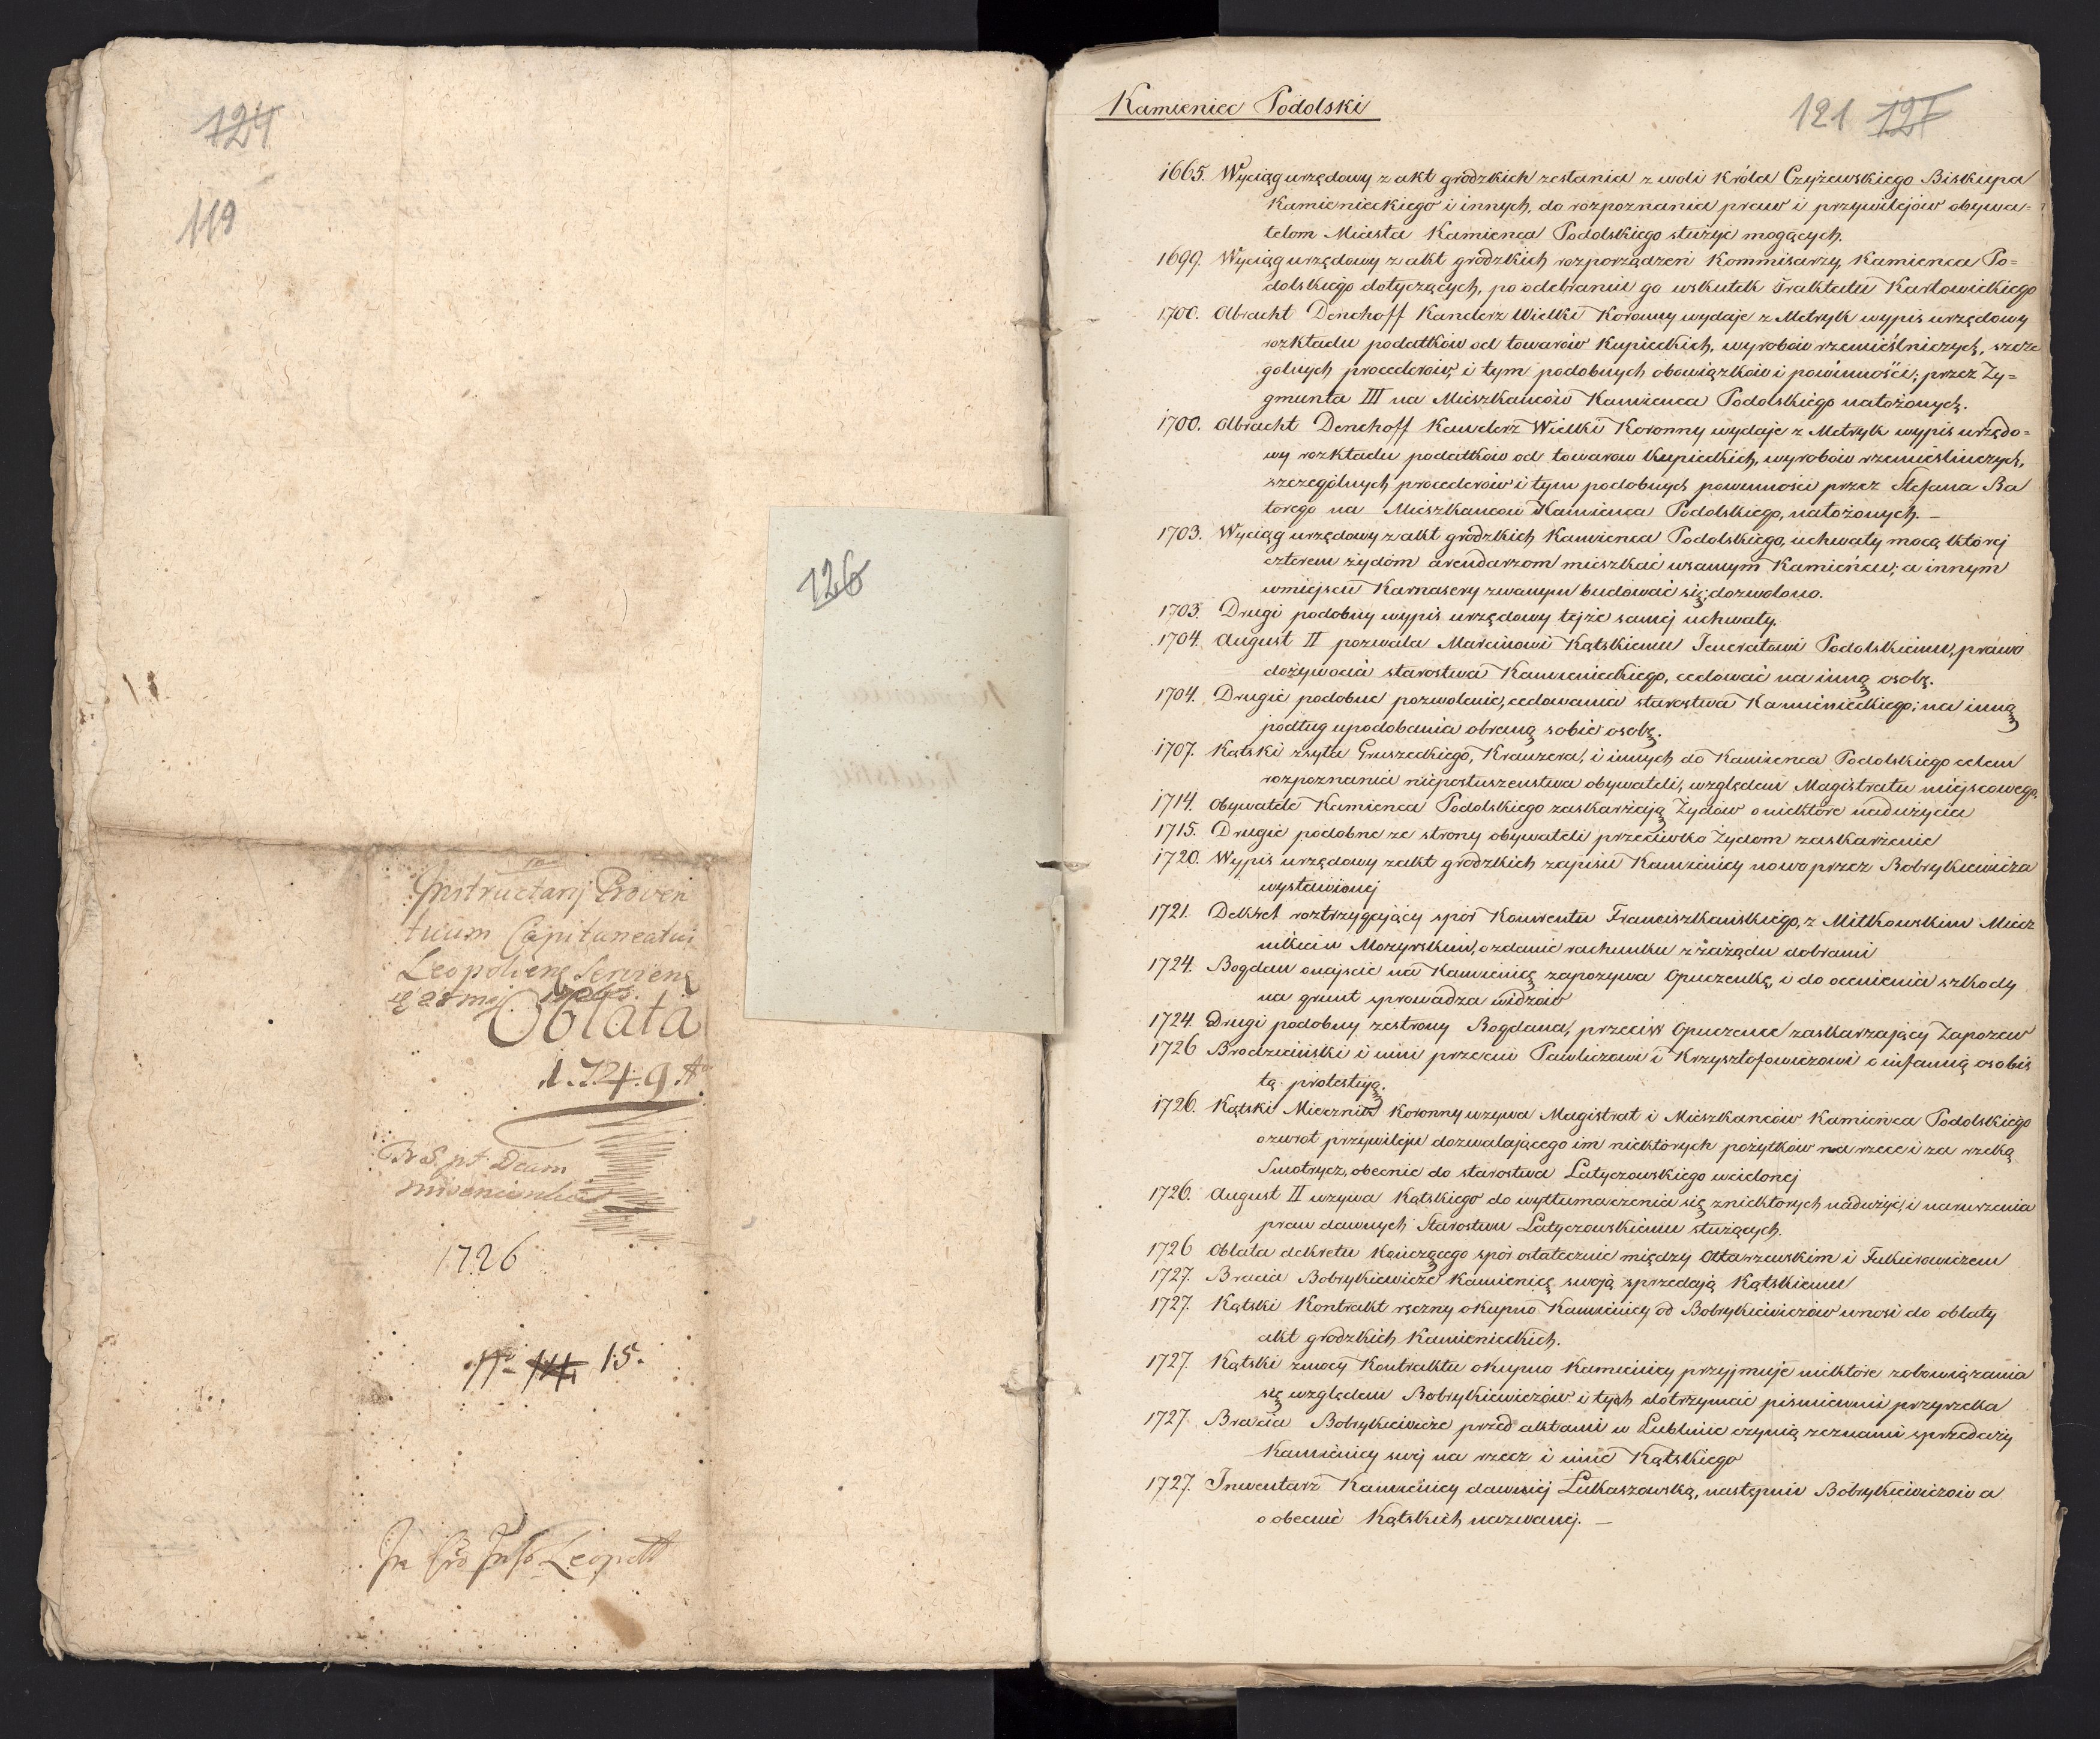 124
119
Instructarij Proven
tuum Capitaneatus
Leopoliens Serviens
Oblata
1749
1726
15.
126
Kamieniec Podolski
121 127
1665. Wyciąg urzędowy z akt grodzkich zesłania z woli Króla Czyżewskiego Biskupa
Kamienieckiego i innych, do rozpoznania praw i przywilejów obywa=
telom Miasta Kamieńca Podolskiego służyć mogących.
1699. Wyciąg urzędowy z akt grodzkich rozporządzeń Kommisarzy, Kamieńca Po=
dolskiego dotyczących, po odebraniu go wskutek Traktatu Karłowickiego
1700. Olbracht Denchoff Kanclerz Wielki Koronny wydaje z Metryk wypis urzędowy
rozkładu podatków od towarów Kupieckich, wyrobów rzemieślniczych, szcze
golnych procederów, i tym podobnych obowiązków i powinności; przez Zy=
gmunta III na Mieszkańców Kamieńca Podolskiego nałożonych.
1700. Olbracht Denchoff Kanclerz Wielki Koronny wydaje z Metryk wypis urzędo=
wy rozkładu podatków od towarow Kupieckich, wyrobów rzemieślniczych,
szczególnych procederów i tym podobnych powinności przez Stefana Ba
torego na Mieszkancow Kamienca Podolskiego, nałożonych. _
1703. Wyciąg urzędowy z akt grodzkich Kamienca Podolskiego, uchwały mocą której
czterem żydom arendarzom mieszkać wsamym Kamieńcu; a innym
wmiejscu Karnasery zwanym budować się; dozwolono.
1703. Drugi podobny wypis urzędowy tejże samej uchwały.
1704. August II pozwala Marcinowi Kątskiemu Jenerałowi Podolskiemu, prawo
dożywocia starostwa Kamienieckiego, cedować na inną osobę.
1704. Drugie podobne pozwolenie, cedowania starostwa Kamienieckiego; na inną
podług upodobania obraną sobie osobę.
1707. Kątski zsyła Gruszeckiego, Krauzera, i innych do Kamienca Podolskiego celem
rozpoznania nieposłuszenstwa obywateli, względem Magistratu miejscowego.
1714. Obywatele Kamienca Podolskiego zaskarżają Żydów o niektóre nadużycia
1715. Drugie podobne ze strony obywateli przeciwko Żydom zaskarżenie
1720. Wypis urzędowy zakt grodzkich zapisu Kamienicy nowo przez Bobrykiewicza
wystawionej
1721. Dekret roztrzygający spór Konwentu Franciszkańskiego, z Mitkowskim Miecz
nikiem Mozyrskim, o zdanie rachunku z zarządu dobrami
1724. Bogdan o najscie na Kamienicę zapozywa Opuczenkę, i do ocenienia szkody
na grunt sprowadza widzów
1724. Drugi podobny ze strony Bogdana, przeciw Opuczence zaskarzający Zapozew
1726 Brodziński i inni przeciw Pawliczowi i Krzysztofowiczowi o infamią osobis
tą protestują.
1726. Kątski Miecznik Koronny wzywa Magistrat i Mieszkancow Kamieńca Podolskiego
o zwrot przywileju dozwalającego im niektórych pożytków na rzece i za rzeką
Smotrycz, obecnie do starostwa Latyczowskiego wcielonej
1726. August II wzywa Kątskiego do wytłumaczenia się z niektorych nadużyć, i naruszenia
praw dawnych Starostwu Latyczowskiemu służących.
1726 Oblata dekretu Kończącego spór ostatecznie między Ottarzewskim i
1727. Bracia Bobrykiewicze Kamienicę swoją sprzedają Kątskiemu
1727. Kątski Kontrakt ręczny o Kupno Kamienicy od Bobrykiewiczów wnosi do oblaty
akt grodzkich Kamienieckich.
1727. Kątski zmocy Kontraktu o Kupno Kamienicy przyjmuje niektóre zobowiązania
się względem Bobrykiewiczów i tych dotrzymać pismiennie przyrzeka
1727. Bracia Bobrykiewicze przed aktami w Lublinie czynią zeznanie sprzedaży
Kamienicy swej na rzecz i imie Kątskiego
1727. Inwentarz Kamienicy dawniej Łukaszowską, następnie Bobrykiewiczow a
o obecnie Kątskich nazwanej. _